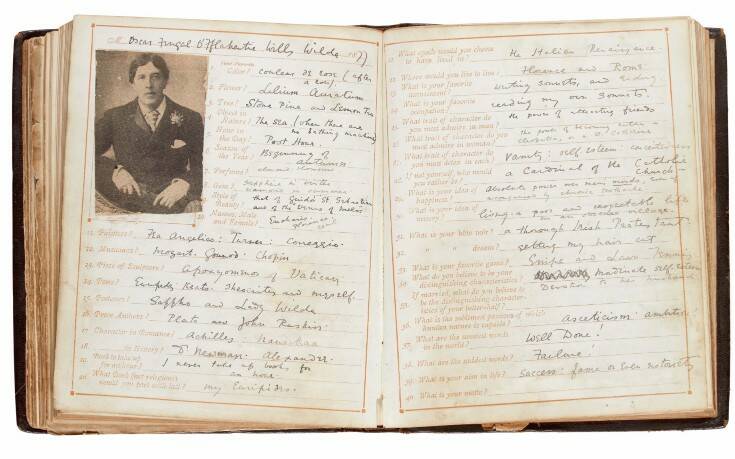 Oscar Fingal O'Fflahertie Wills Wilde 1877
1. Color?
2. Flower? Lilium Auratum
3. Tree? Stone Pine and Lemon Tree
4. Object in Nature? The Sea (when there are
no bathing machines)
5. Hour in the Day? Post Hour
6. Season of the Year? Beginning of
autumn
7. Perfume? almond blossom
8. Gem? Sapphire
9. Style of Beauty? that of Guido's St. Sebastian
and of the Venus of Melos
10. Names, Male and Female?
11. Painters? Fra Angelico: Turner: Correggio
12. Musicians? Mozart. Gounod: Chopin
13. Piece of Sculpture? Apoxyomenos of Vatican
14. Poets? Euripides Keats. Theocritus and myself.
15. Poetesses? Sappho and Lady Wilde
16. Prose Authors? Plato and John Ruskin:
17. Character in Romance? Achilles: Nausicaa
18. in History? Dr Newman: Alexander.
19. Book to take up for an hour? I never take up books for
an hour
20. What book (not religious) would you part with last? my Euripides.
21. What epoch would you choose to have lived in? The Italian Renaissance
22. Where would you like to live? Florence and Rome
23. What is your favorite amusement? Writing sonnets, and
24. What is your favorite occupation? reading my own sonnets.
25. What trait of character do you most admire in man? the power of attracting friends
26. What trait of character do you most admire in woman?
27. What trait of character do you most detest in each? Vanity: self esteem: conceitedness
28. If not yourself, who would you rather be? a Cardinal of the Catholic
Church
29. What is your idea of happiness? absolute power over men's minds, even if
accompanied by chronic toothache
30. What is your idea of misery? living a poor and respectable life
in an obscure village
31. What is your bête noir? a thorough Irish Protestant
32. " " dream? getting my hair cut
33. What is your favorite game? Snipe and Lawn Tennis
34. What do you believe to be your distinguishing characteristics? inordinate self esteem
35. If married, what do you believe to be the distinguishing characteristics of your better-half? Devotion to her husband
36. What is the sublimest passion of which human nature is capable? Asceticism: ambition:
37. What are the sweetest words in the world? Well Done!
38. What are the saddest words? Failure!
39. What is your aim in life? Success: fame or even notoriety
40. What is your motto?